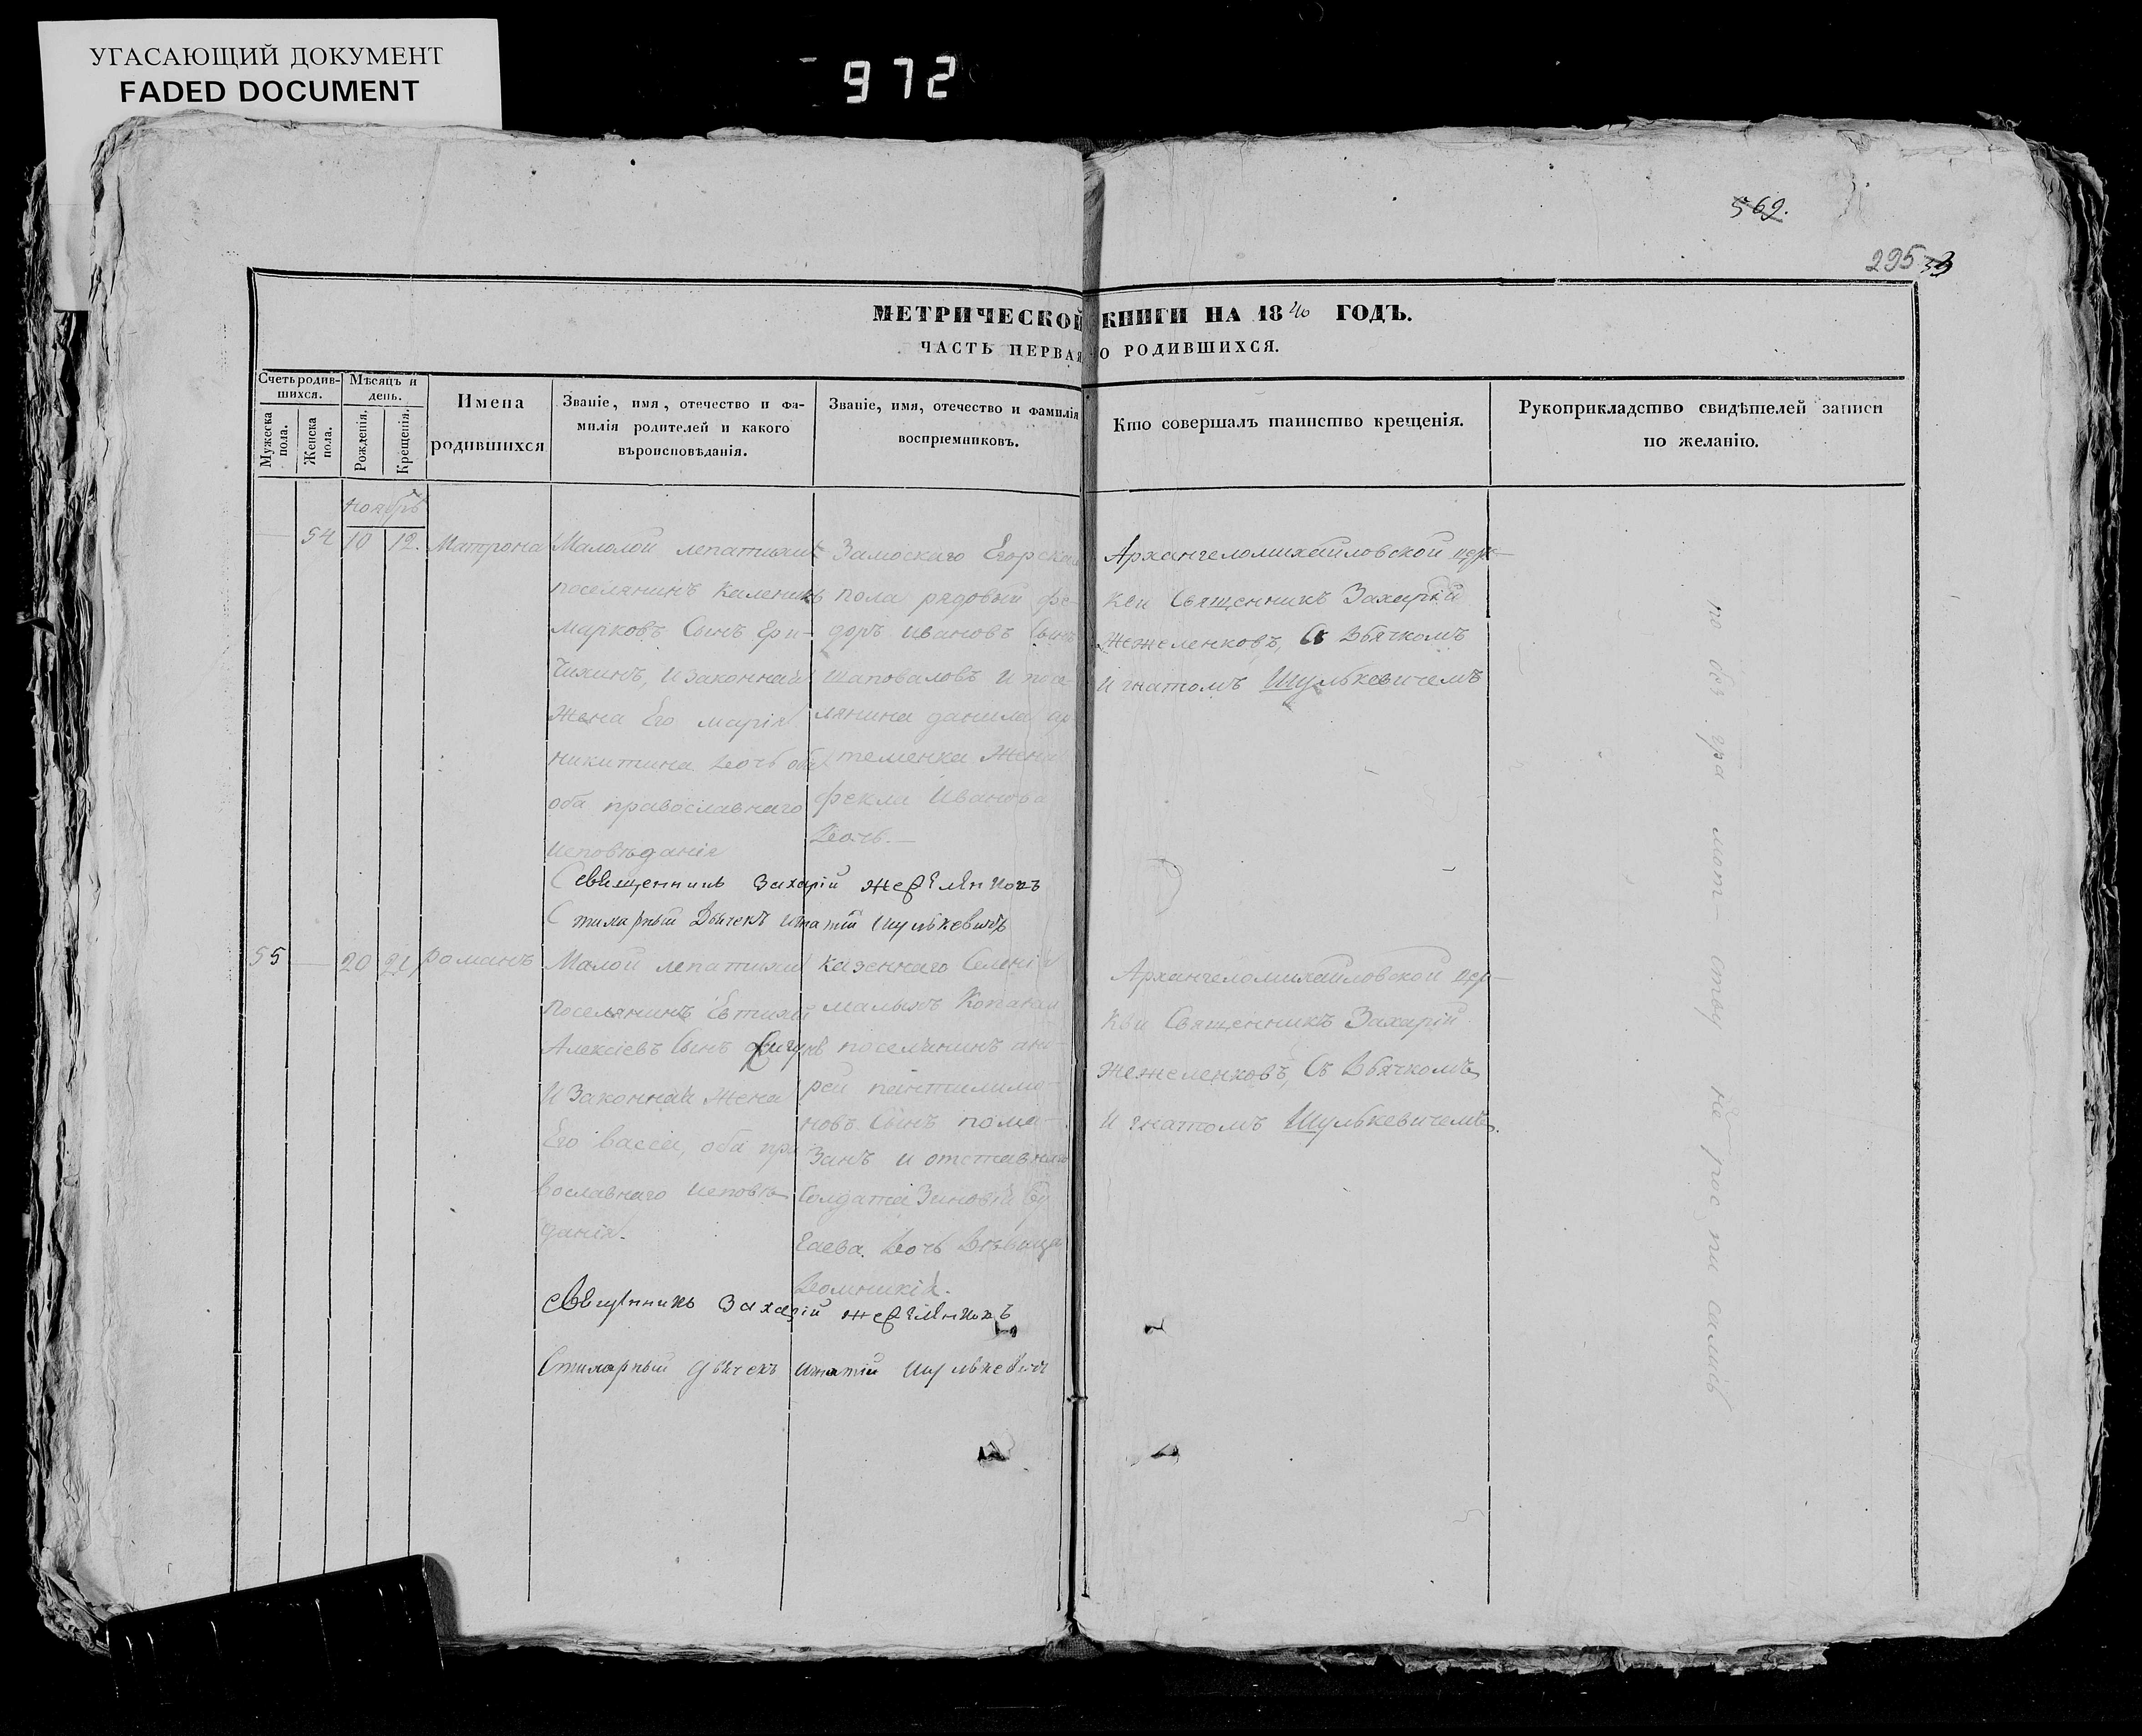 УГАСАЮЩИЙ ДОКУМЕНТ
FADED DOCUMENT
972
569.
295
МЕТРИЧЕСКОЙ КНИГИ НА 1840 ГОДЪ.
ЧАСТЬ ПЕРВАЯ О РОДИВШИХСЯ.
Счетъ родив-
шихся.
Мужеска пола.
Женска пола.
Мѣсяцъ и
день.
Рожденія.
Крещенія.
Имена
родившихся
Званіе, имя, отечество и фа-
милія родителей и какого
вѣроисповѣданія.
Званіе, имя, отечество и фамилія
воспріемниковъ.
Кто совершалъ таинство крещенія.
Рукоприкладство свидѣтелей записи
по желанію.
Ноябрь
54 10 12. Матрона
поселянинъ Каленикъ
Марковъ Сынъ Ери-
чихинъ, и законная
жена Его Марія
Никитина дочь
оба православнаго
исповѣданія
рядовый Фе-
доръ Ивановъ Сынъ
Шаповаловъ и посе-
лянина Данила Ар-
теменка жена
Фекла Иванова
дочь.—
Архангеломихайловской цер-
кви Священникъ Захарій
Жежеленковъ, Съ Дьячкомъ
Игнатомъ Шулькевичемъ
Священникъ Захарій Жежеленковъ
Дьячекъ Игнатій Шулькевичъ
55 — 20 21 Романъ
Малой лепатихи
поселянинъ Евтихій
Алексіевъ Сынъ
и законная жена
Его Васса, оба пра
вославнаго исповѣ-
данія.
казеннаго Селенія
Малыхъ Копаней
поселянинъ Анд-
рей Пантилимо-
новъ Сынъ
и отставнаго
Солдата Зиновія
дочь Дѣвица
Архангеломихайловской цер-
кви Священникъ Захарій
Жежеленковъ, Съ Дьячкомъ
Игнатомъ Шулькевичемъ.
Священникъ Захарій Жежеленковъ
Дьячекъ Игнатій Шулькевичъ